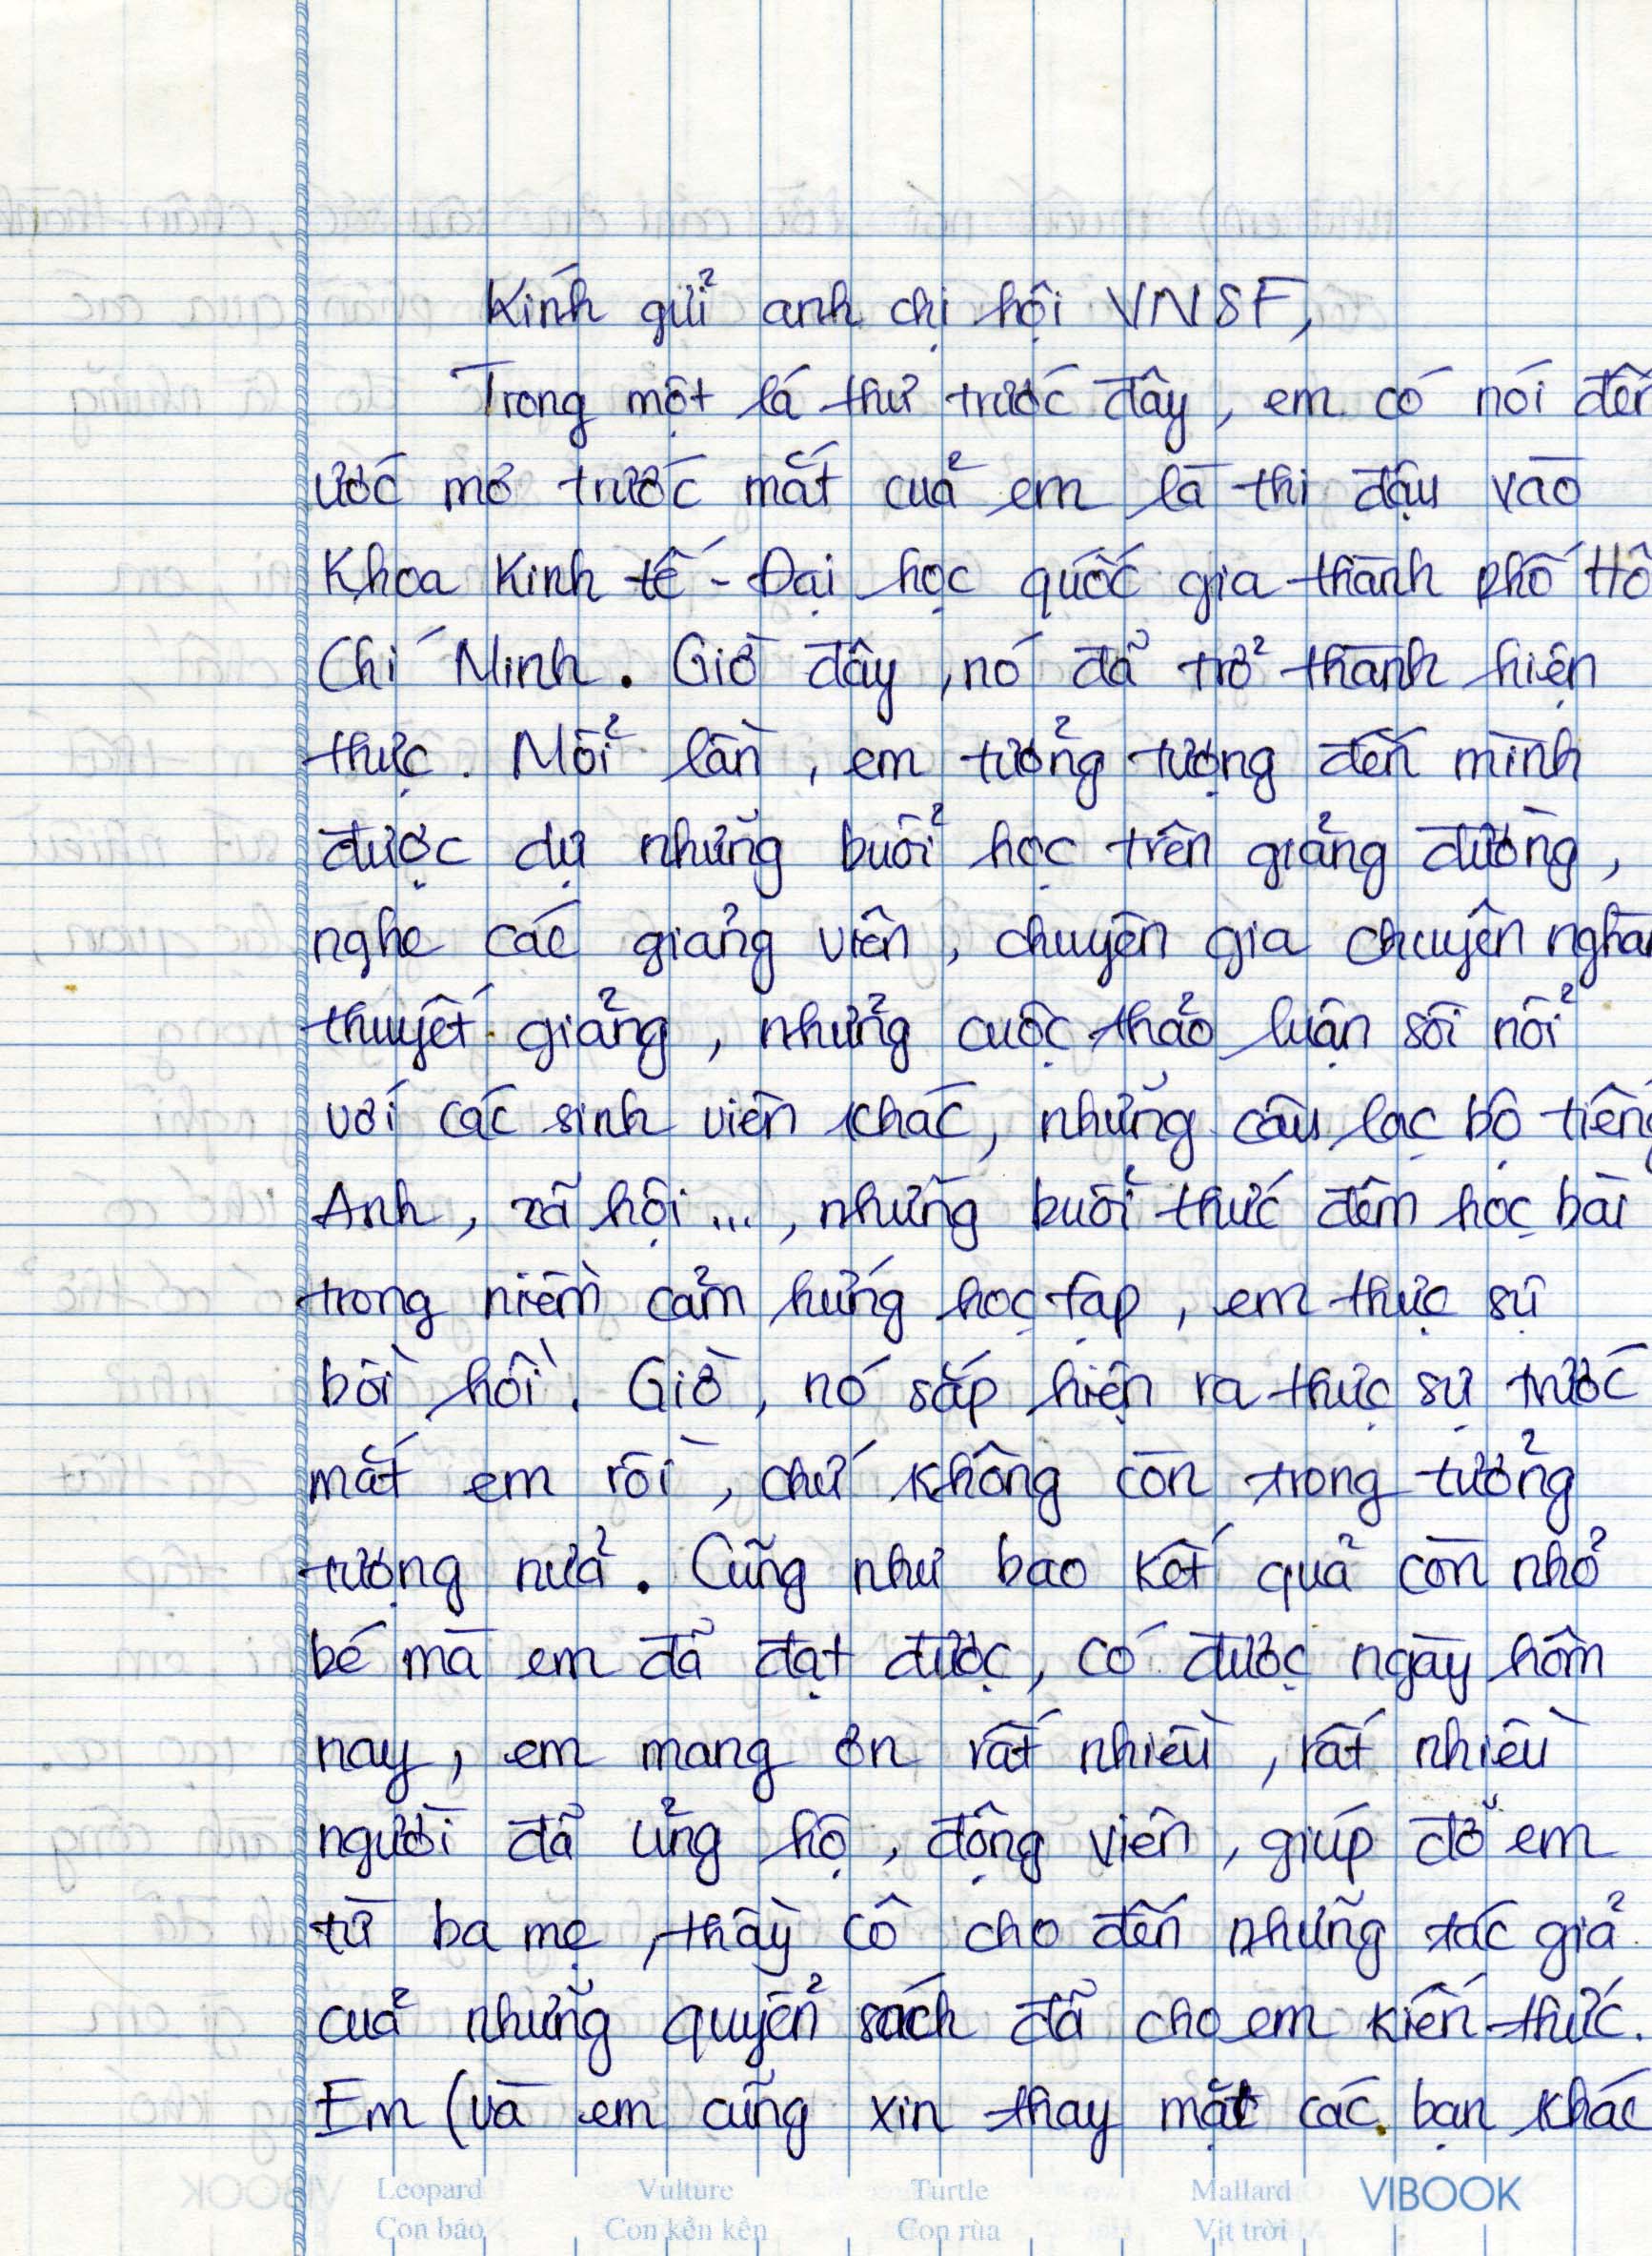 Kính gửi anh chị hội VNSF,
Trong một lá thư trước đây, em có nói đến
ước mơ trước mắt của em là thi đậu vào
Khoa Kinh tế - Đại học quốc gia thành phố Hồ
Chí Minh. Giờ đây, nó đã trở thành hiện
thực. Mỗi lần, em tưởng tượng đến mình
được dự những buổi học trên giảng đường,
nghe các giảng viên, chuyên gia chuyên ngàn
thuyết giảng, những cuộc thảo luận sôi nổi
với các sinh viên khác, những câu lạc bộ tiếng
Anh, xã hội..., những buổi thức đêm học bài
trong niềm cảm hứng học tập, em thực sự
bồi hồi. Giờ, nó sắp hiện ra thực sự trước
mắt em rồi, chứ không còn trong tưởng
tượng nữa. Cũng như bao kết quả còn nhỏ
bé mà em đã đạt được, có được ngày hôm
nay, em mang ơn rất nhiều, rất nhiều
người đã ủng hộ, động viên, giúp đỡ em
từ ba mẹ, thầy cô cho đến những tác giả
của những quyển sách đã cho em kiến thức.
Em (và em cũng xin thay mặt các bạn khác
Leopard Vulture Turtle Mallard VIBOOK
Con báo Con kền kền Con rùa Vịt trời